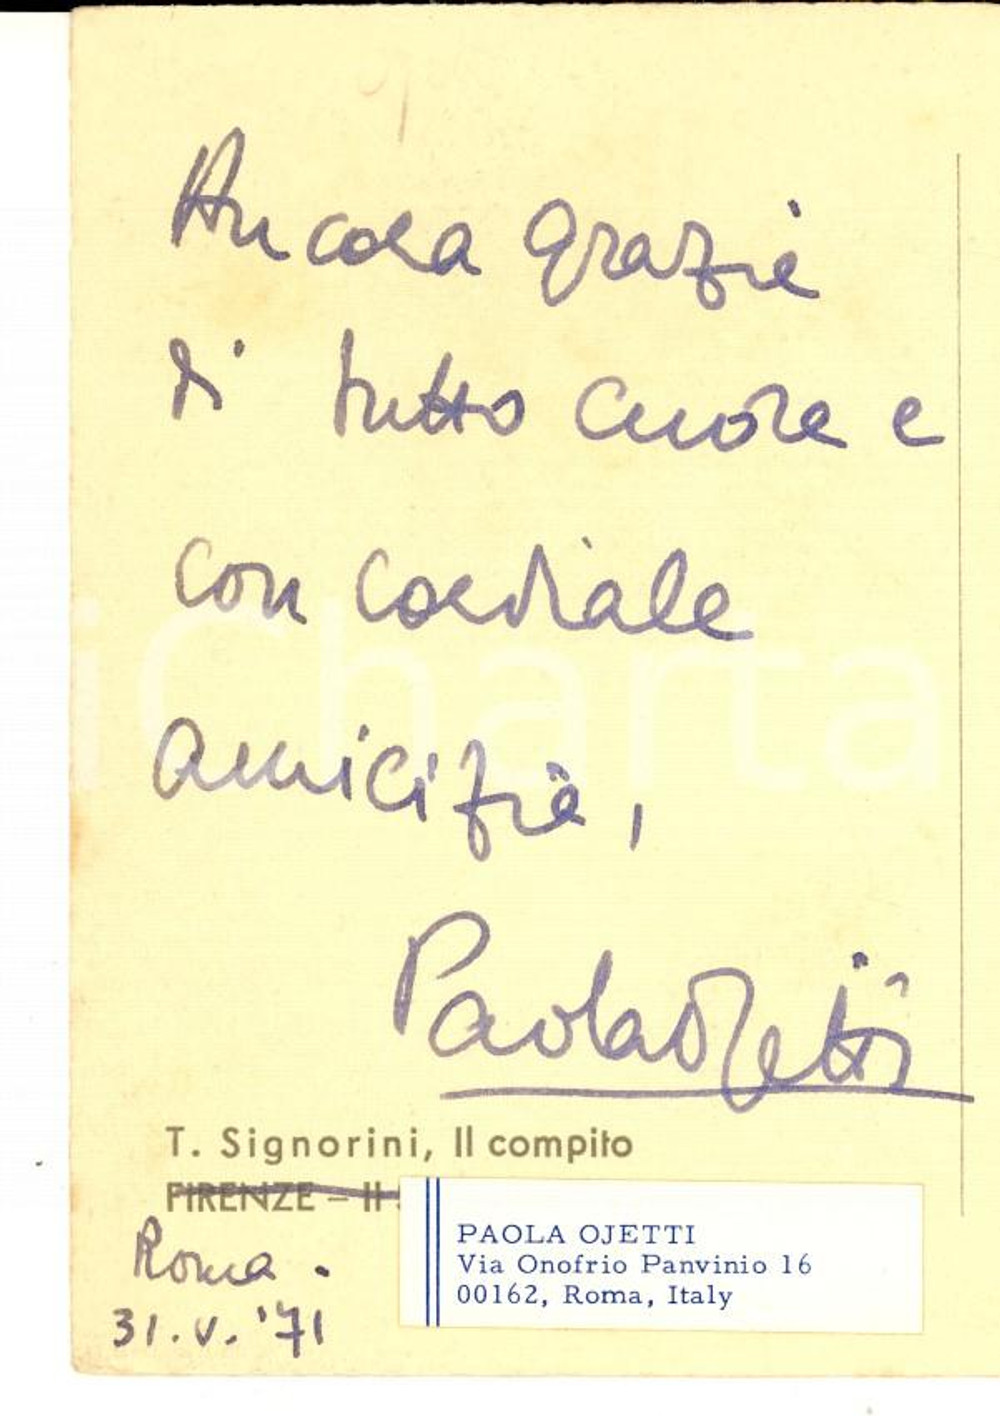 Ancora grazie
di tutto cuore e
con cordiale
amicizia,
Paola Ojetti
T. Signorini, Il compito
FIRENZE – Il
PAOLA OJETTI
Via Onofrio Panvinio 16
00162, Roma, Italy
Roma.
31.V.'71
iCharta